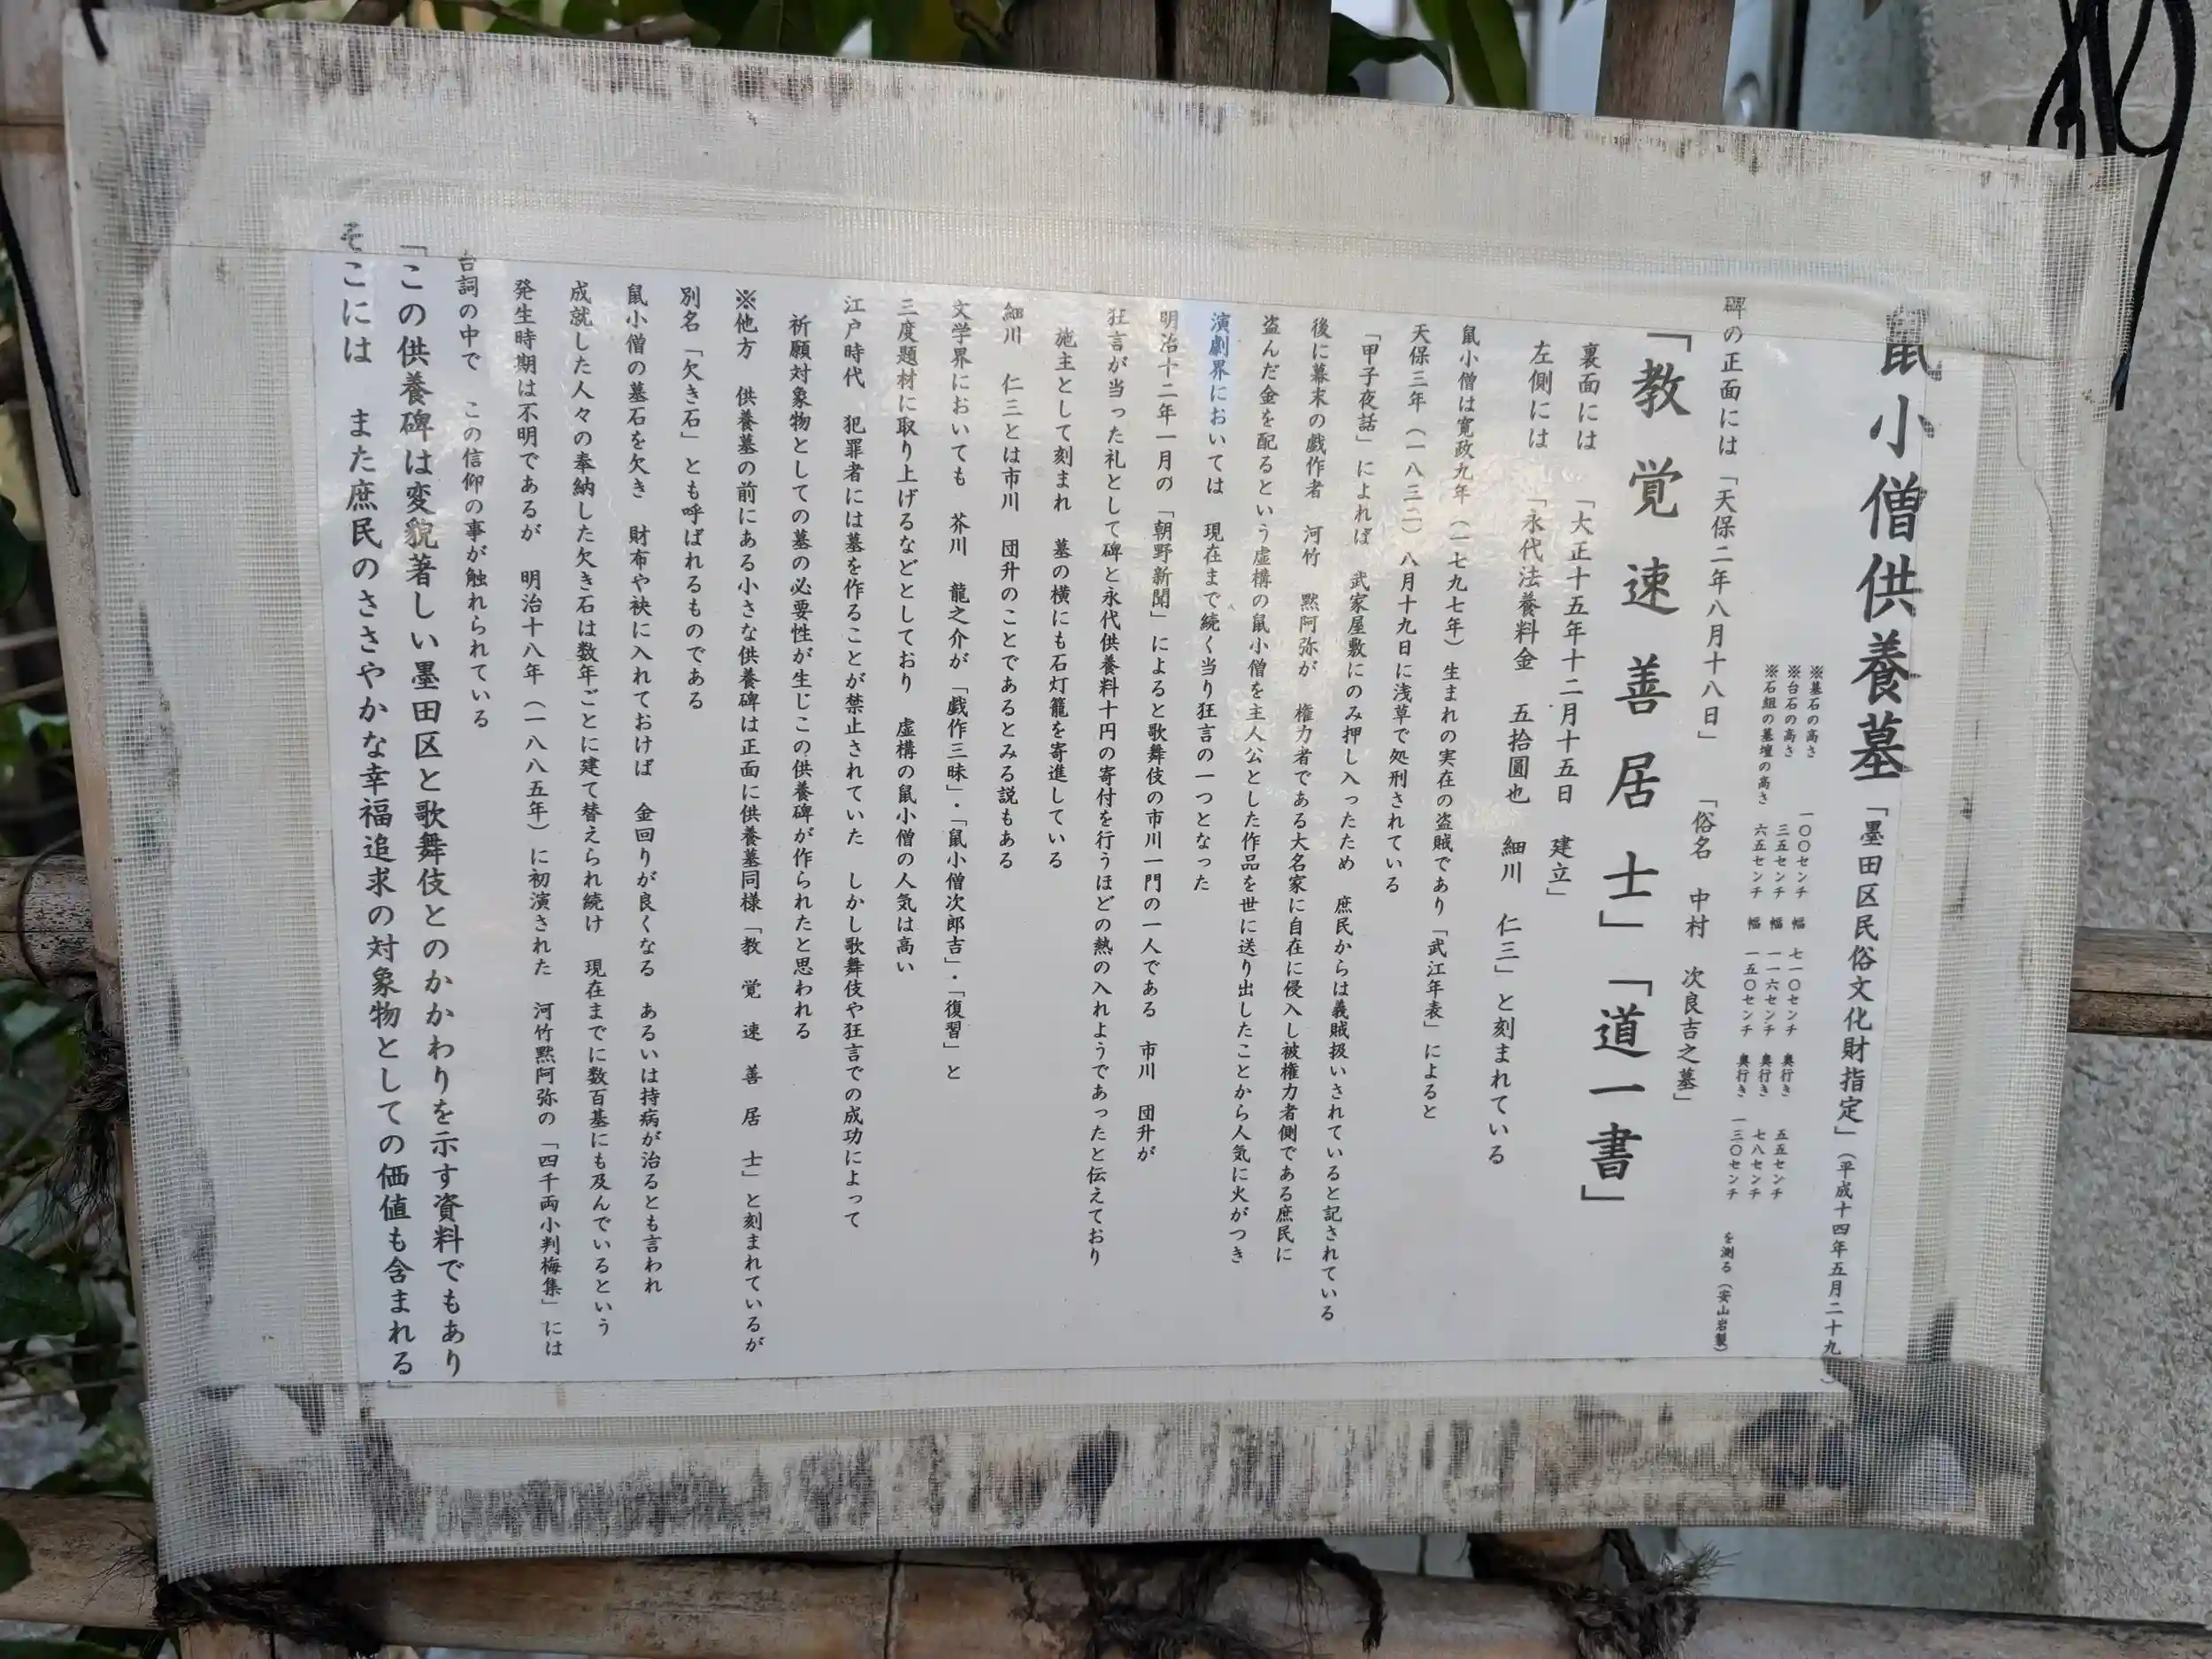 鼠小僧供養墓「墨田区民俗文化財指定」（平成十四年五月二十九
※墓石の高さ 一〇〇センチ 幅 七一〇センチ 奥行き 五五センチ
※台石の高さ 三五センチ 幅 一一六センチ 奥行き 七八センチ
※石組の墓壇の高さ 六五センチ 幅 一五〇センチ 奥行き 一三〇センチ を測る（安山岩製）
碑の正面には「天保二年八月十八日」 「俗名 中村 次良吉之墓」
「教覚速善居士」「道一書」
裏面には 「大正十五年十二月十五日 建立」
左側には 「永代法養料金 五拾圓也 細川 仁三」と刻まれている
鼠小僧は寛政九年（一七九七年）生まれの実在の盗賊であり「武江年表」によると
天保三年（一八三二）八月十九日に浅草で処刑されている
「甲子夜話」によれば 武家屋敷にのみ押し入ったため 庶民からは義賊扱いされていると記されている
後に幕末の戯作者 河竹 黙阿弥が 権力者である大名家に自在に侵入し被権力者側である庶民に
盗んだ金を配るという虚構の鼠小僧を主人公とした作品を世に送り出したことから人気に火がつき
演劇界においては 現在まで続く当り狂言の一つとなった
明治十二年一月の「朝野新聞」によると歌舞伎の市川一門の一人である 市川 団升が
狂言が当った礼として碑と永代供養料十円の寄付を行うほどの熱の入れようであったと伝えており
施主として刻まれ 墓の横にも石灯籠を寄進している
細川 仁三とは市川 団升のことであるとみる説もある
文学界においても 芥川 龍之介が「戯作三昧」・「鼠小僧次郎吉」・「復習」と
三度題材に取り上げるなどとしており 虚構の鼠小僧の人気は高い
江戸時代 犯罪者には墓を作ることが禁止されていた しかし歌舞伎や狂言での成功によって
祈願対象物としての墓の必要性が生じこの供養碑が作られたと思われる
※他方 供養墓の前にある小さな供養碑は正面に供養墓同様「教 覚 速 善 居 士」と刻まれているが
別名「欠き石」とも呼ばれるものである
鼠小僧の墓石を欠き 財布や袂に入れておけば 金回りが良くなる あるいは持病が治るとも言われ
成就した人々の奉納した欠き石は数年ごとに建て替えられ続け 現在までに数百基にも及んでいるという
発生時期は不明であるが 明治十八年（一八八五年）に初演された 河竹黙阿弥の「四千両小判梅集」には
台詞の中で この信仰の事が触れられている
「この供養碑は変貌著しい墨田区と歌舞伎とのかかわりを示す資料でもあり
そこには また庶民のささやかな幸福追求の対象物としての価値も含まれる」